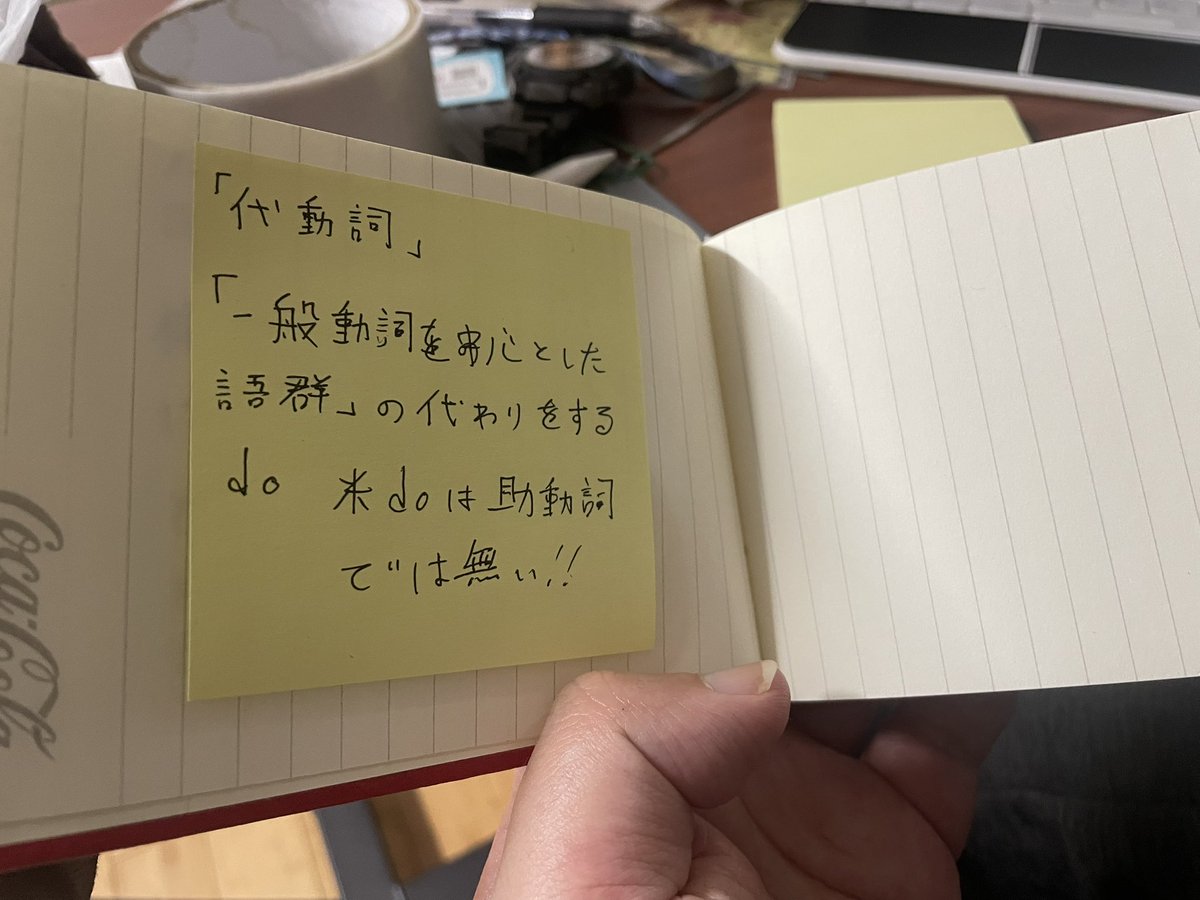 「代動詞」
「一般動詞を中心とした
語群」の代わりをする
do ※doは助動詞
では無い!!
Coca-Cola